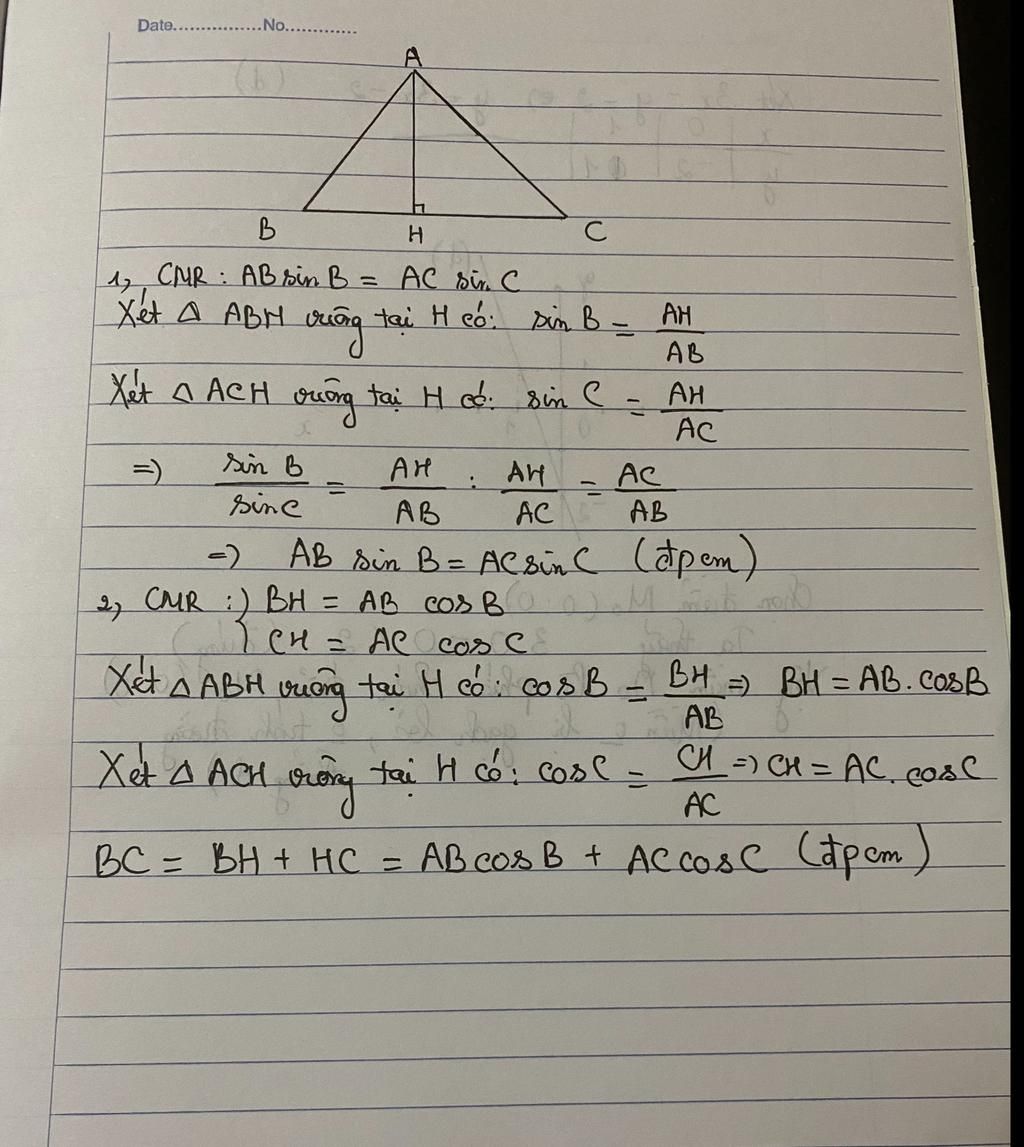 Date................No.............
A
B H C
1, CMR : AB sin B = AC sin C
Xét Δ ABH vuông tại H có: sin B = AH/AB
Xét Δ ACH vuông tại H có: sin C = AH/AC
=) sin B/sin C = AH/AB : AH/AC = AC/AB
=) AB sin B = AC sin C (đpcm)
2, CMR :) BH = AB cos B
CH = AC cos C
Xét Δ ABH vuông tại H có: cos B = BH/AB =) BH = AB. cosB
Xét Δ ACH vuông tại H có: cosC = CH/AC =) CH = AC. cosC
BC = BH + HC = ABcosB + ACcosC (đpcm)